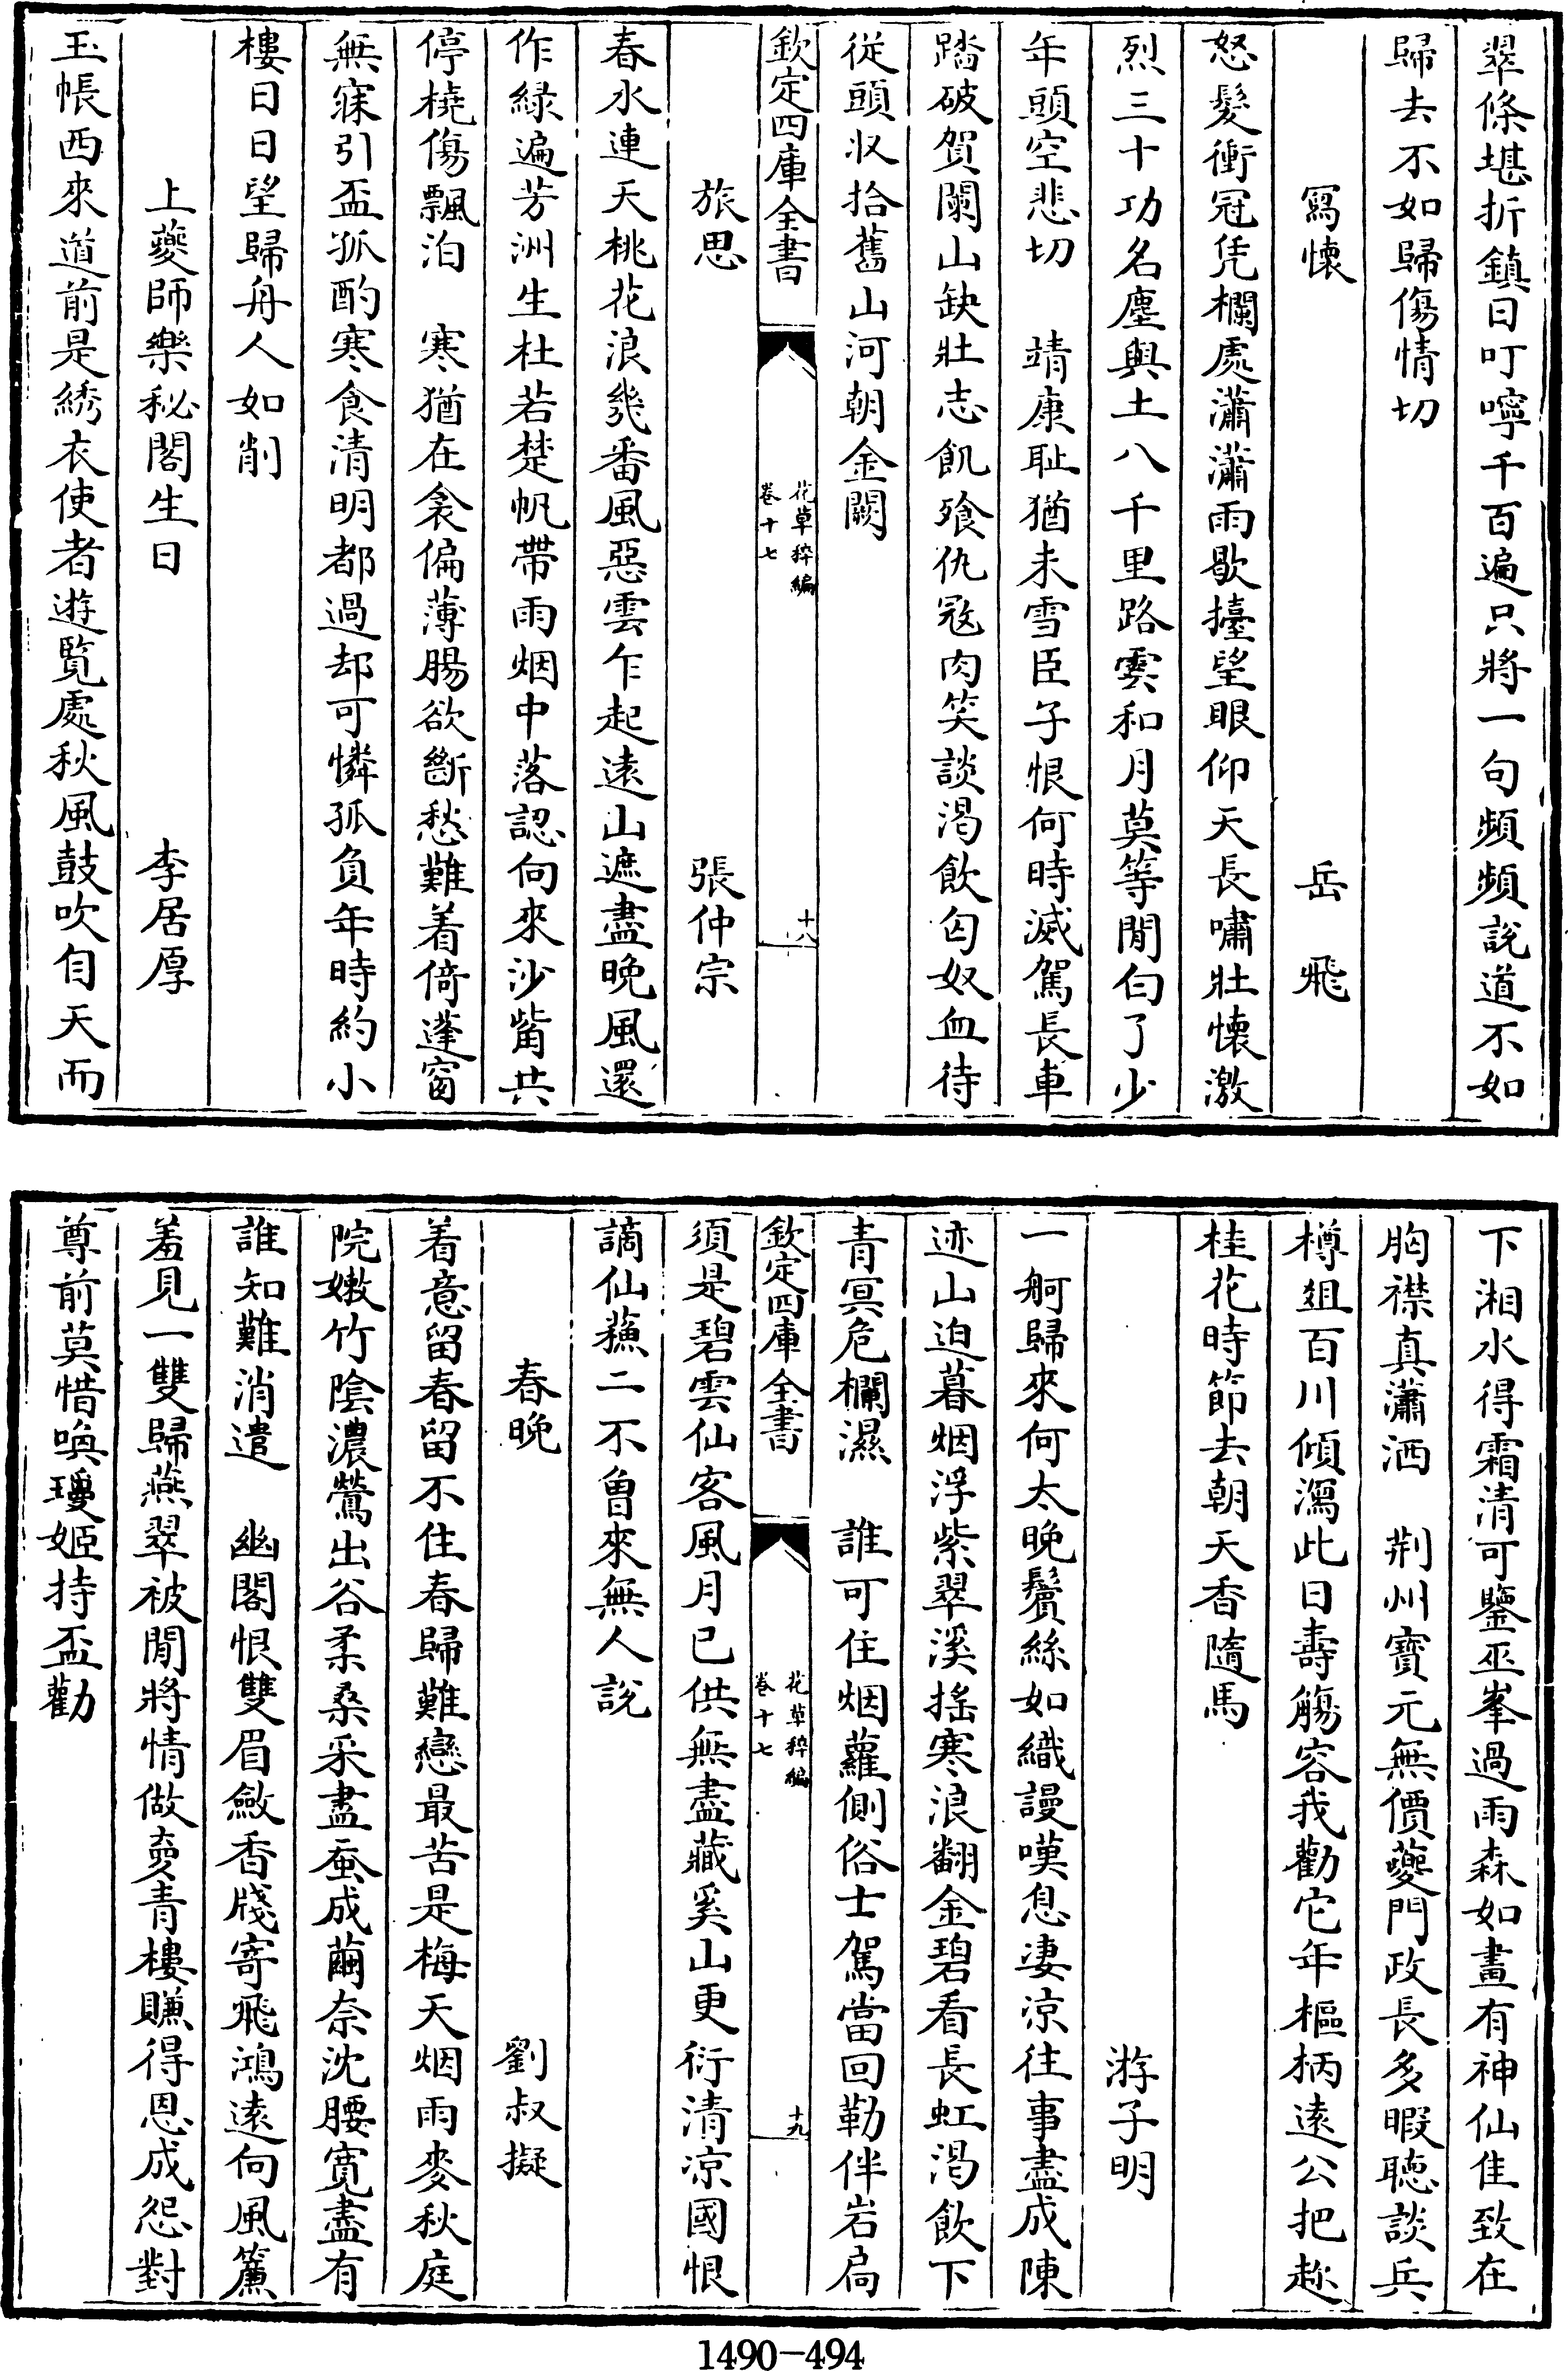 翠條堪折鎮日叮嚀千百遍只將一句頻頻說道不如
歸去不如歸傷情切
寫懷　岳飛
怒髮衝冠凭欄處瀟瀟雨歇擡望眼仰天長嘯壯懷激
烈三十功名塵與土八千里路雲和月莫等閒白了少
年頭空悲切　靖康耻猶未雪臣子恨何時滅駕長車
踏破賀蘭山缺壯志飢飱仇冦肉笑談渴飲匈奴血待
從頭収拾舊山河朝金闕
欽定四庫全書　花草稡編卷十七　十八
旅思　張仲宗
春水連天桃花浪幾番風惡雲乍起遠山遮盡晚風還
作緑遍芳洲生杜若楚帆帶雨烟中落認向來沙觜共
停橈傷飄泊　寒猶在衾偏薄腸欲斷愁難着倚蓬窗
無寐引盃孤酌寒食清明都過却可憐孤負年時約小
樓日日望歸舟人如削
上夔師樂秘閣生日　李居厚
玉帳西來道前是綉衣使者遊覧處秋風鼓吹自天而
下湘水得霜清可鑒巫峯過雨森如畫有神仙隹致在
胸襟真瀟洒　荆州寶元無價夔門政長多暇聴談兵
樽俎百川傾瀉此日壽觴容我勸它年樞柄遠公把趂
桂花時節去朝天香隨馬
游子明
一舸歸來何太晚鬢絲如織謾嘆息凄凉往事盡成陳
迹山迫暮烟浮紫翠溪揺寒浪翻金碧看長虹渴飲下
青冥危欄濕　誰可住烟蘿側俗士駕當回勒伴岩扃
欽定四庫全書　花草稡編卷十七　十九
須是碧雲仙客風月已供無盡藏奚山更衍清凉國恨
謫仙蘓二不曽來無人說
春晚　劉叔擬
着意留春留不住春歸難戀最苦是梅天烟雨麥秋庭
院嫩竹陰濃鶯出谷柔桑采盡蚕成繭奈沈腰寛盡有
誰知難消遣　幽閣恨雙眉斂香牋寄飛鴻遠向風簾
羞見一雙歸燕翠被閒將情做㚃青樓賺得恩成怨對
尊前莫惜喚瓊姬持盃勸
1490-494